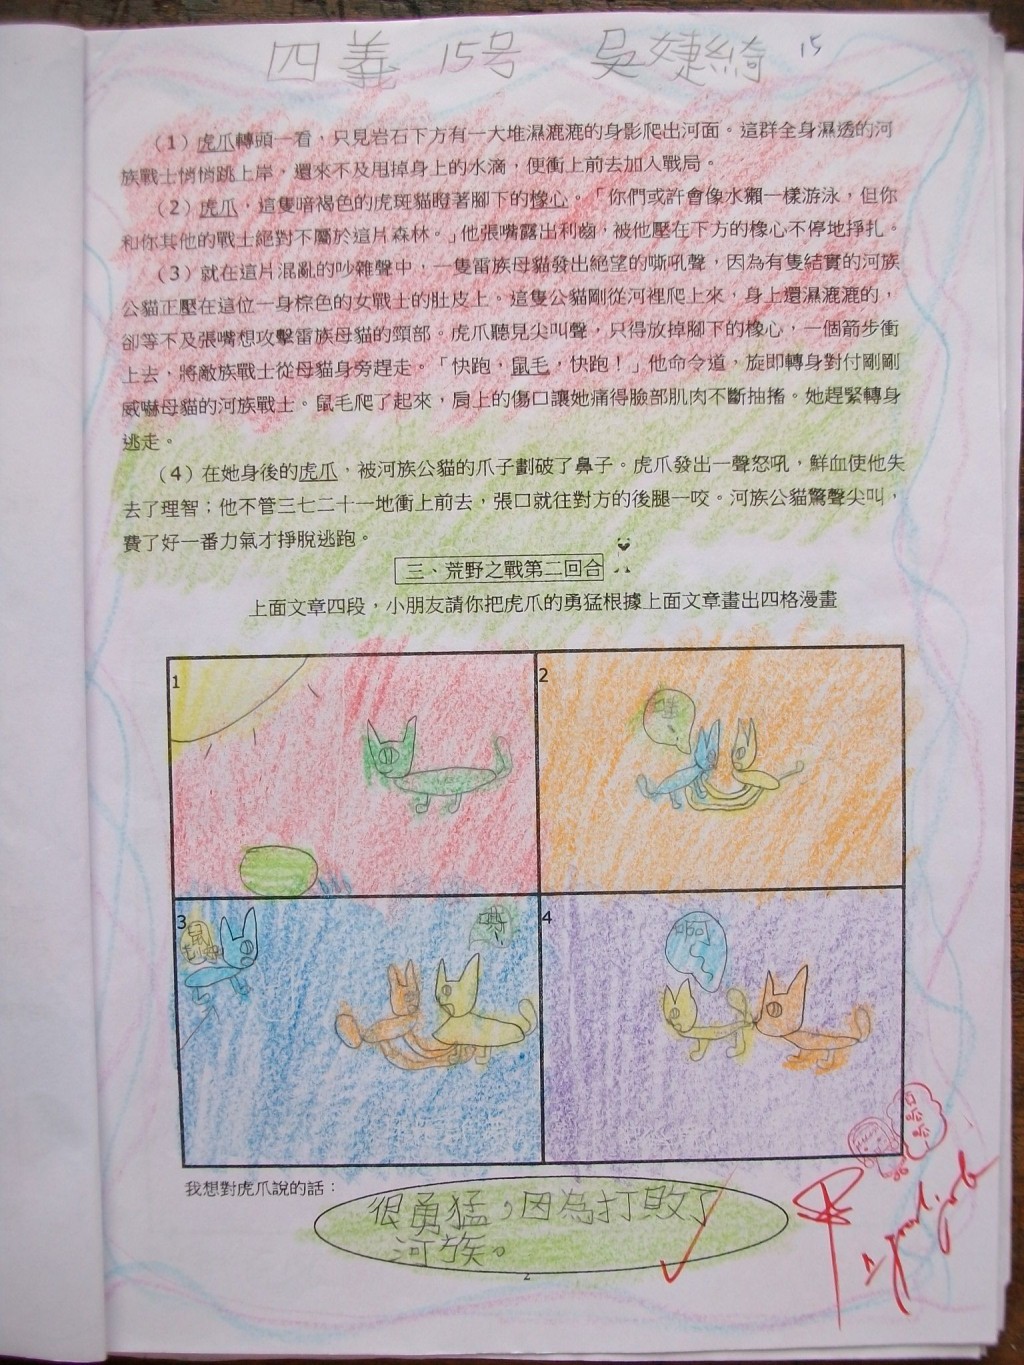 四義 15号 吳婕綺 15
（1）虎爪轉頭一看，只見岩石下方有一大堆濕漉漉的身影爬出河面。這群全身濕透的河
族戰士悄悄跳上岸，還來不及甩掉身上的水滴，便衝上前去加入戰局。
（2）虎爪，這隻暗褐色的虎斑貓瞪著腳下的橡心。「你們或許會像水獺一樣游泳，但你
和你其他的戰士絕對不屬於這片森林。」他張嘴露出利齒，被他壓在下方的橡心不停地掙扎。
（3）就在這片混亂的吵雜聲中，一隻雷族母貓發出絕望的嘶吼聲，因為有隻結實的河族
公貓正壓在這位一身棕色的女戰士的肚皮上。這隻公貓剛從河裡爬上來，身上還濕漉漉的，
卻等不及張嘴想攻擊雷族母貓的頸部。虎爪聽見尖叫聲，只得放掉腳下的橡心，一個箭步衝
上去，將敵族戰士從母貓身旁趕走。「快跑，鼠毛，快跑！」他命令道，旋即轉身對付剛剛
威嚇母貓的河族戰士。鼠毛爬了起來，肩上的傷口讓她痛得臉部肌肉不斷抽搐。她趕緊轉身
逃走。
（4）在她身後的虎爪，被河族公貓的爪子劃破了鼻子。虎爪發出一聲怒吼，鮮血使他失
去了理智；他不管三七二十一地衝上前去，張口就往對方的後腿一咬。河族公貓驚聲尖叫，
費了好一番力氣才掙脫逃跑。
三、荒野之戰第二回合
上面文章四段，小朋友請你把虎爪的勇猛根據上面文章畫出四格漫畫
1
2
3
4
啊
我想對虎爪說的話：
很勇猛，因為打敗了
河族。
2